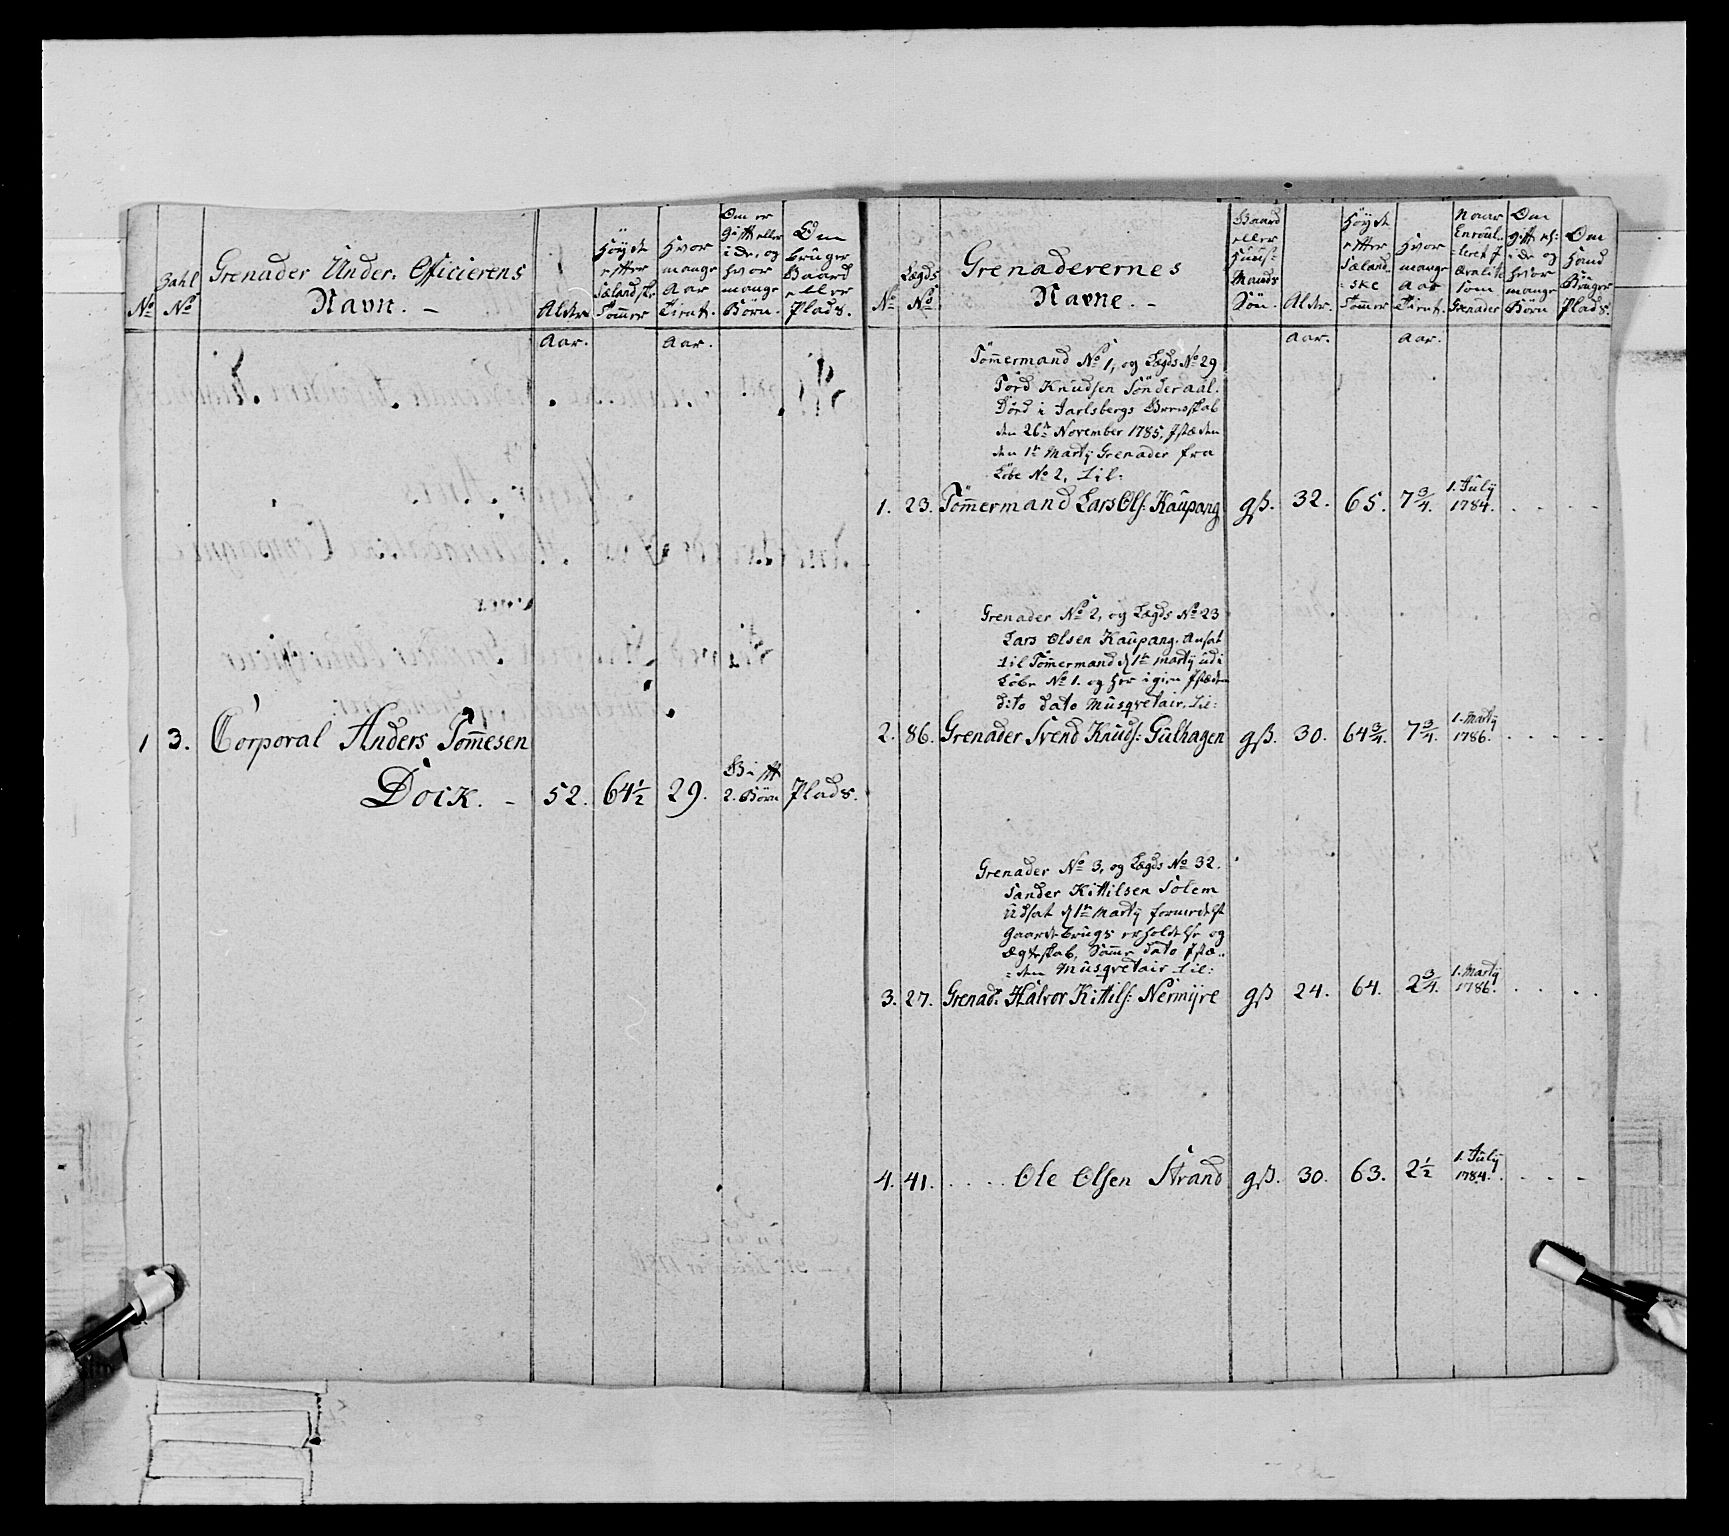 No
Zahl No
Grenader Under: Officierens
Navn. –
Alder
Höyde
efter
Sælandske
Tommer
Hvor
mange
Aar
tient.
Om er
gift eller
ide, og
hvor
mange
Börn.
Om
bruger
Gaard
eller
Plads.
Aar.
Aar.
1 3. Corporal Anders Tom̃esen
Dock. – 52. 64½ 29. Gift 2. Börn Plads.
No
Lægds No
Grenaderernes
Navne. –
Gaard
eller
Huus-
Mands
Sön.
Alder.
Höyde
efter
Sæland-
ske
Tom̃er
Hvor
mange
Aar
tient.
Naar
Enroul-
leret i
Qvalite
som
Grenader
Om
gift el:
ide og
hvor
mange
Börn
Om
Hand
Bruger
Plads.
Aar.
Aar.
Töm̃ermand No 1, og Lægds No 29
Tord Knudsen Sönderaal.
Död i Jarlsbergs Grevskab
den 26de November 1785, Istæden
den 1te Martij Grenader fra
Löbe No 2, til:
1. 23. Töm̃ermand Lars Ols: Kaupang gß. 32. 65. 7¾. 1. July 1784.
Grenader No 2, og Lægds No 23
Lars Olsen Kaupang. Ansat
til Töm̃ermand d 1te Martij udi
Löbe No 1. og her igien Istæden
dito dato Musqvetair, til:
2. 86. Grenader Svend Knuds: Gulhagen gß. 30. 64¾. 7¾. 1. Martij 1786.
Grenader No 3, og Lægds No 32.
Sander Kittilsen Solem
Udsat d 1te Martij formedelst
Gaardebrugs erholdelse og
Ægteskab, Sam̃e dato Istæ-
den Musqvetair til:
3. 27. Grenad: Halvor Kittils: Nermyre gß 24. 64. 2¾. 1. Martij 1786.
4. 41. . . . . Ole Olsen Strand gß. 30. 63. 2½ 1. July 1784.